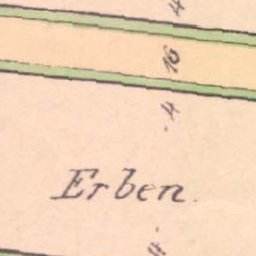 4
16
4
Erben.
4.